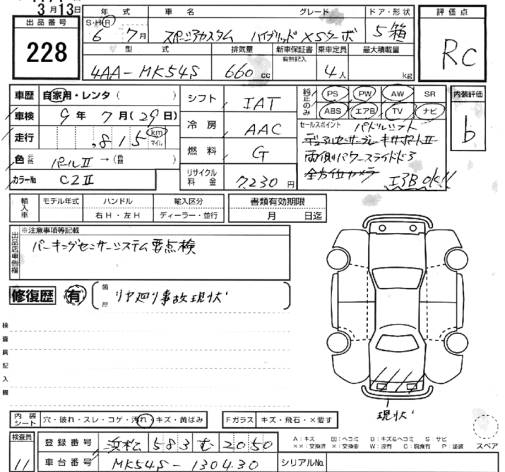 3月13日
出品番号 228
年 式 車 名 グレード ドア・形状
S・H・R 6年 7月 スペーシアカスタム ハイブリッドXSターボ 5 箱
評価点 RC
型 式 排気量 新車保証書 乗車定員 最大積載量
有無記入
4AA-MK54S 660cc 4人 kg
車歴 自家用・レンタ( )
車検 9年 7月(29日)
走行 815 km マイル
色 パールII →( )
カラーNo CZ2
シフト IAT
冷房 AAC
燃料 G
リサイクル料金 7230円
純正のみ PS PW AW SR
ABS エアB TV ナビ
セールスポイント パドルシフト
デュアルセンサーブレーキサポートII
両側パワースライドドア
全方位カメラ
内装評価 b
輸入車 モデル年式 ハンドル 輸入区分 書類有効期限
右H・左H ディーラー・並行 月 日迄
※注意事項等記載
出品店車側欄
パーキングセンサーシステム要点検
修復歴 有 箇所 リヤ廻り事故現状
検査員記入欄
現状
内装シート 穴・破れ・スレ・コゲ・汚れ・キズ・黄ばみ Fガラス キズ・飛石・X要す
検査員 11
登録番号 浜松 583 む 2050
車台番号 MK54S-130430 シリアルNo.
A:キズ
スペア